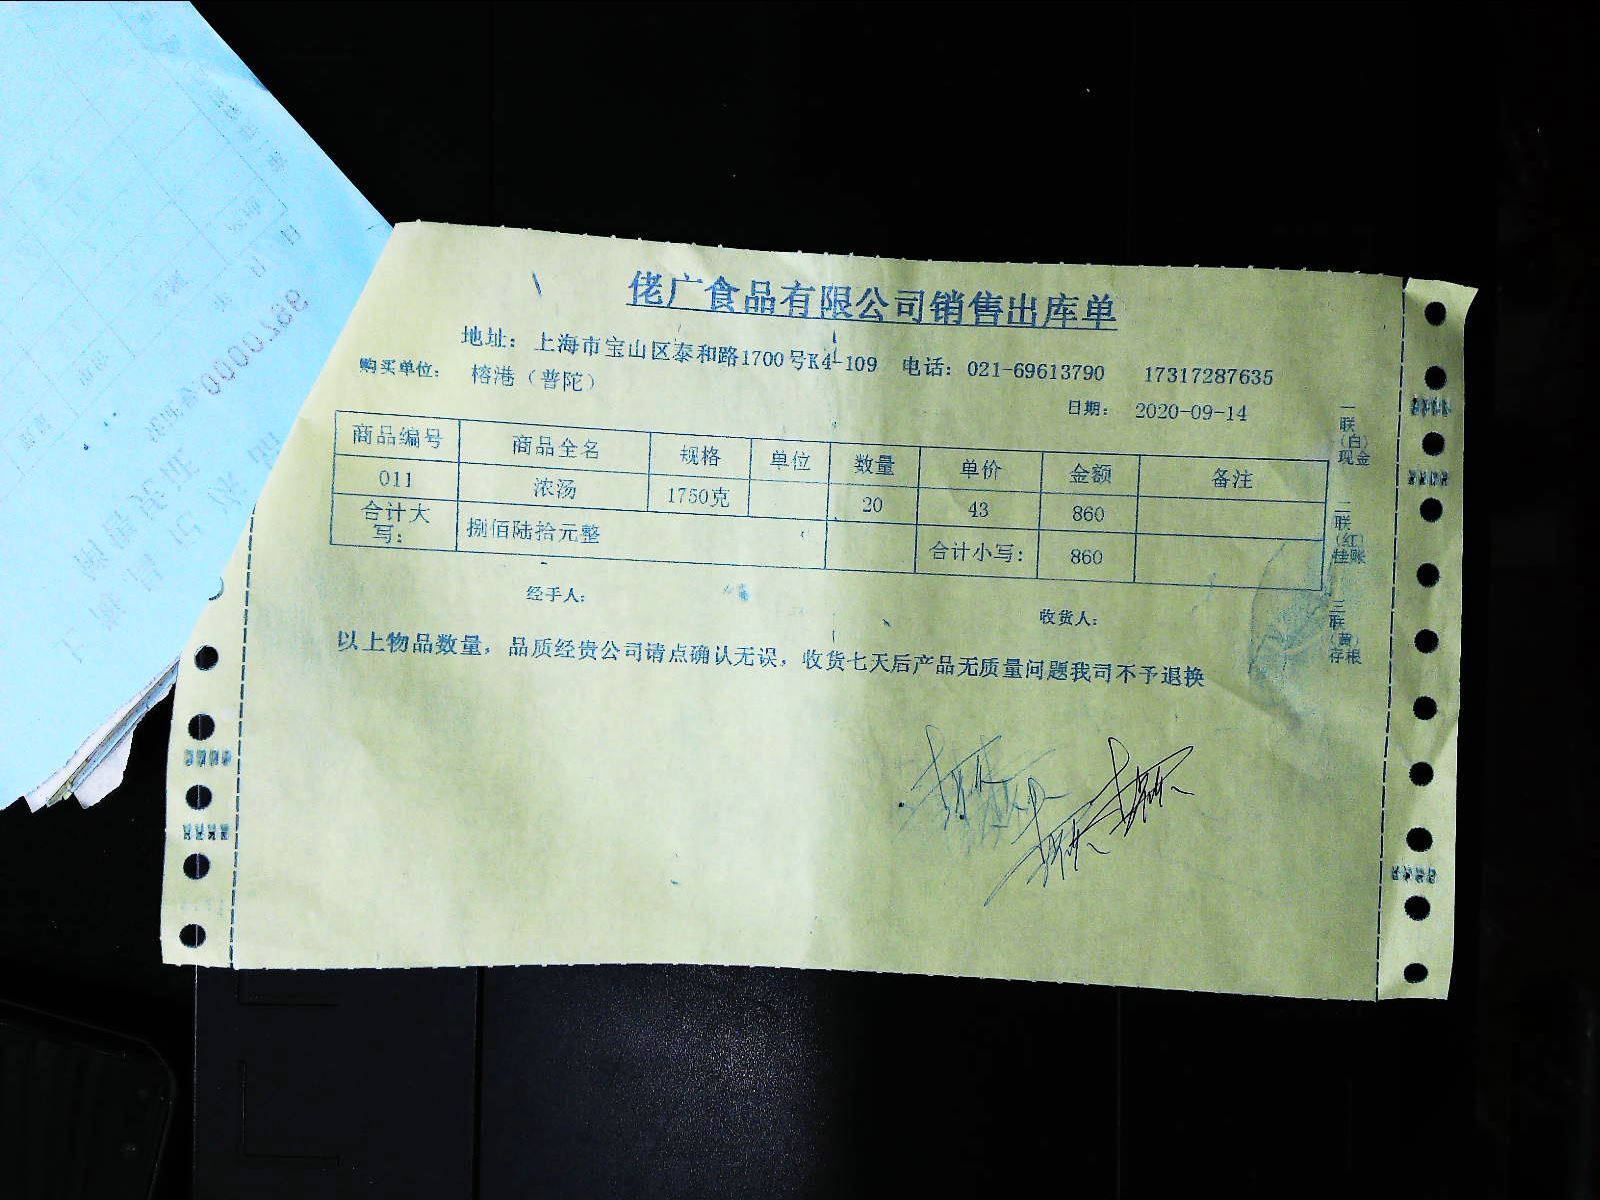 佬广食品有限公司销售出库单
地址： 上海市宝山区泰和路1700号K4-109 电话：021-69613790 17317287635
购买单位： 榕港（普陀）
日期： 2020-09-14
商品编号 商品全名 规格 单位 数量 单价 金额 备注
011 浓汤 1750克 20 43 860
合计大写： 捌佰陆拾元整 合计小写： 860
经手人： 收货人：
以上物品数量，品质经贵公司请点确认无误，收货七天后产品无质量问题我司不予退换
一联（白）现金
二联（红）挂账
三联（黄）存根